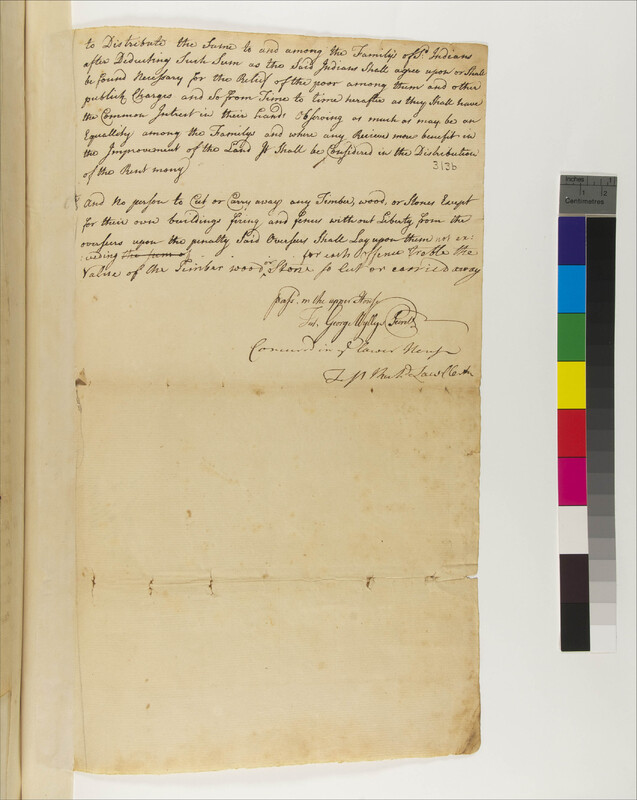 to Distribute the Same to and among the Familys of Sd. Indians
after Deducting Such Sum as the Said Indians Shall agree upon or Shall
be found Necessary for the Relief of the poor among them and other
publick Charges and So from Time to time hereafter as they Shall have
the Common Intrest in their hands Observing as much as may be an
Equallity among the Familys and where any Recieve more benefit in
the Improvement of the Land It Shall be Considred in the Distribution
of the Rent mony
313b
And No person to Cut or Carry away any Timber, wood, or Stones Except
for their own buildings fireing and fences without Liberty from the
overseers upon the penalty Said Overseers Shall Lay upon them not ex-
:ceeding the sum of for each Offence Treble the
Value of the Timber wood or Stone so Cut or carried away
pass'd in the upper House
Test. George Wyllys Secret'y
Concurrd in ye Lower House
Test
Inches
1
2
Centimetres